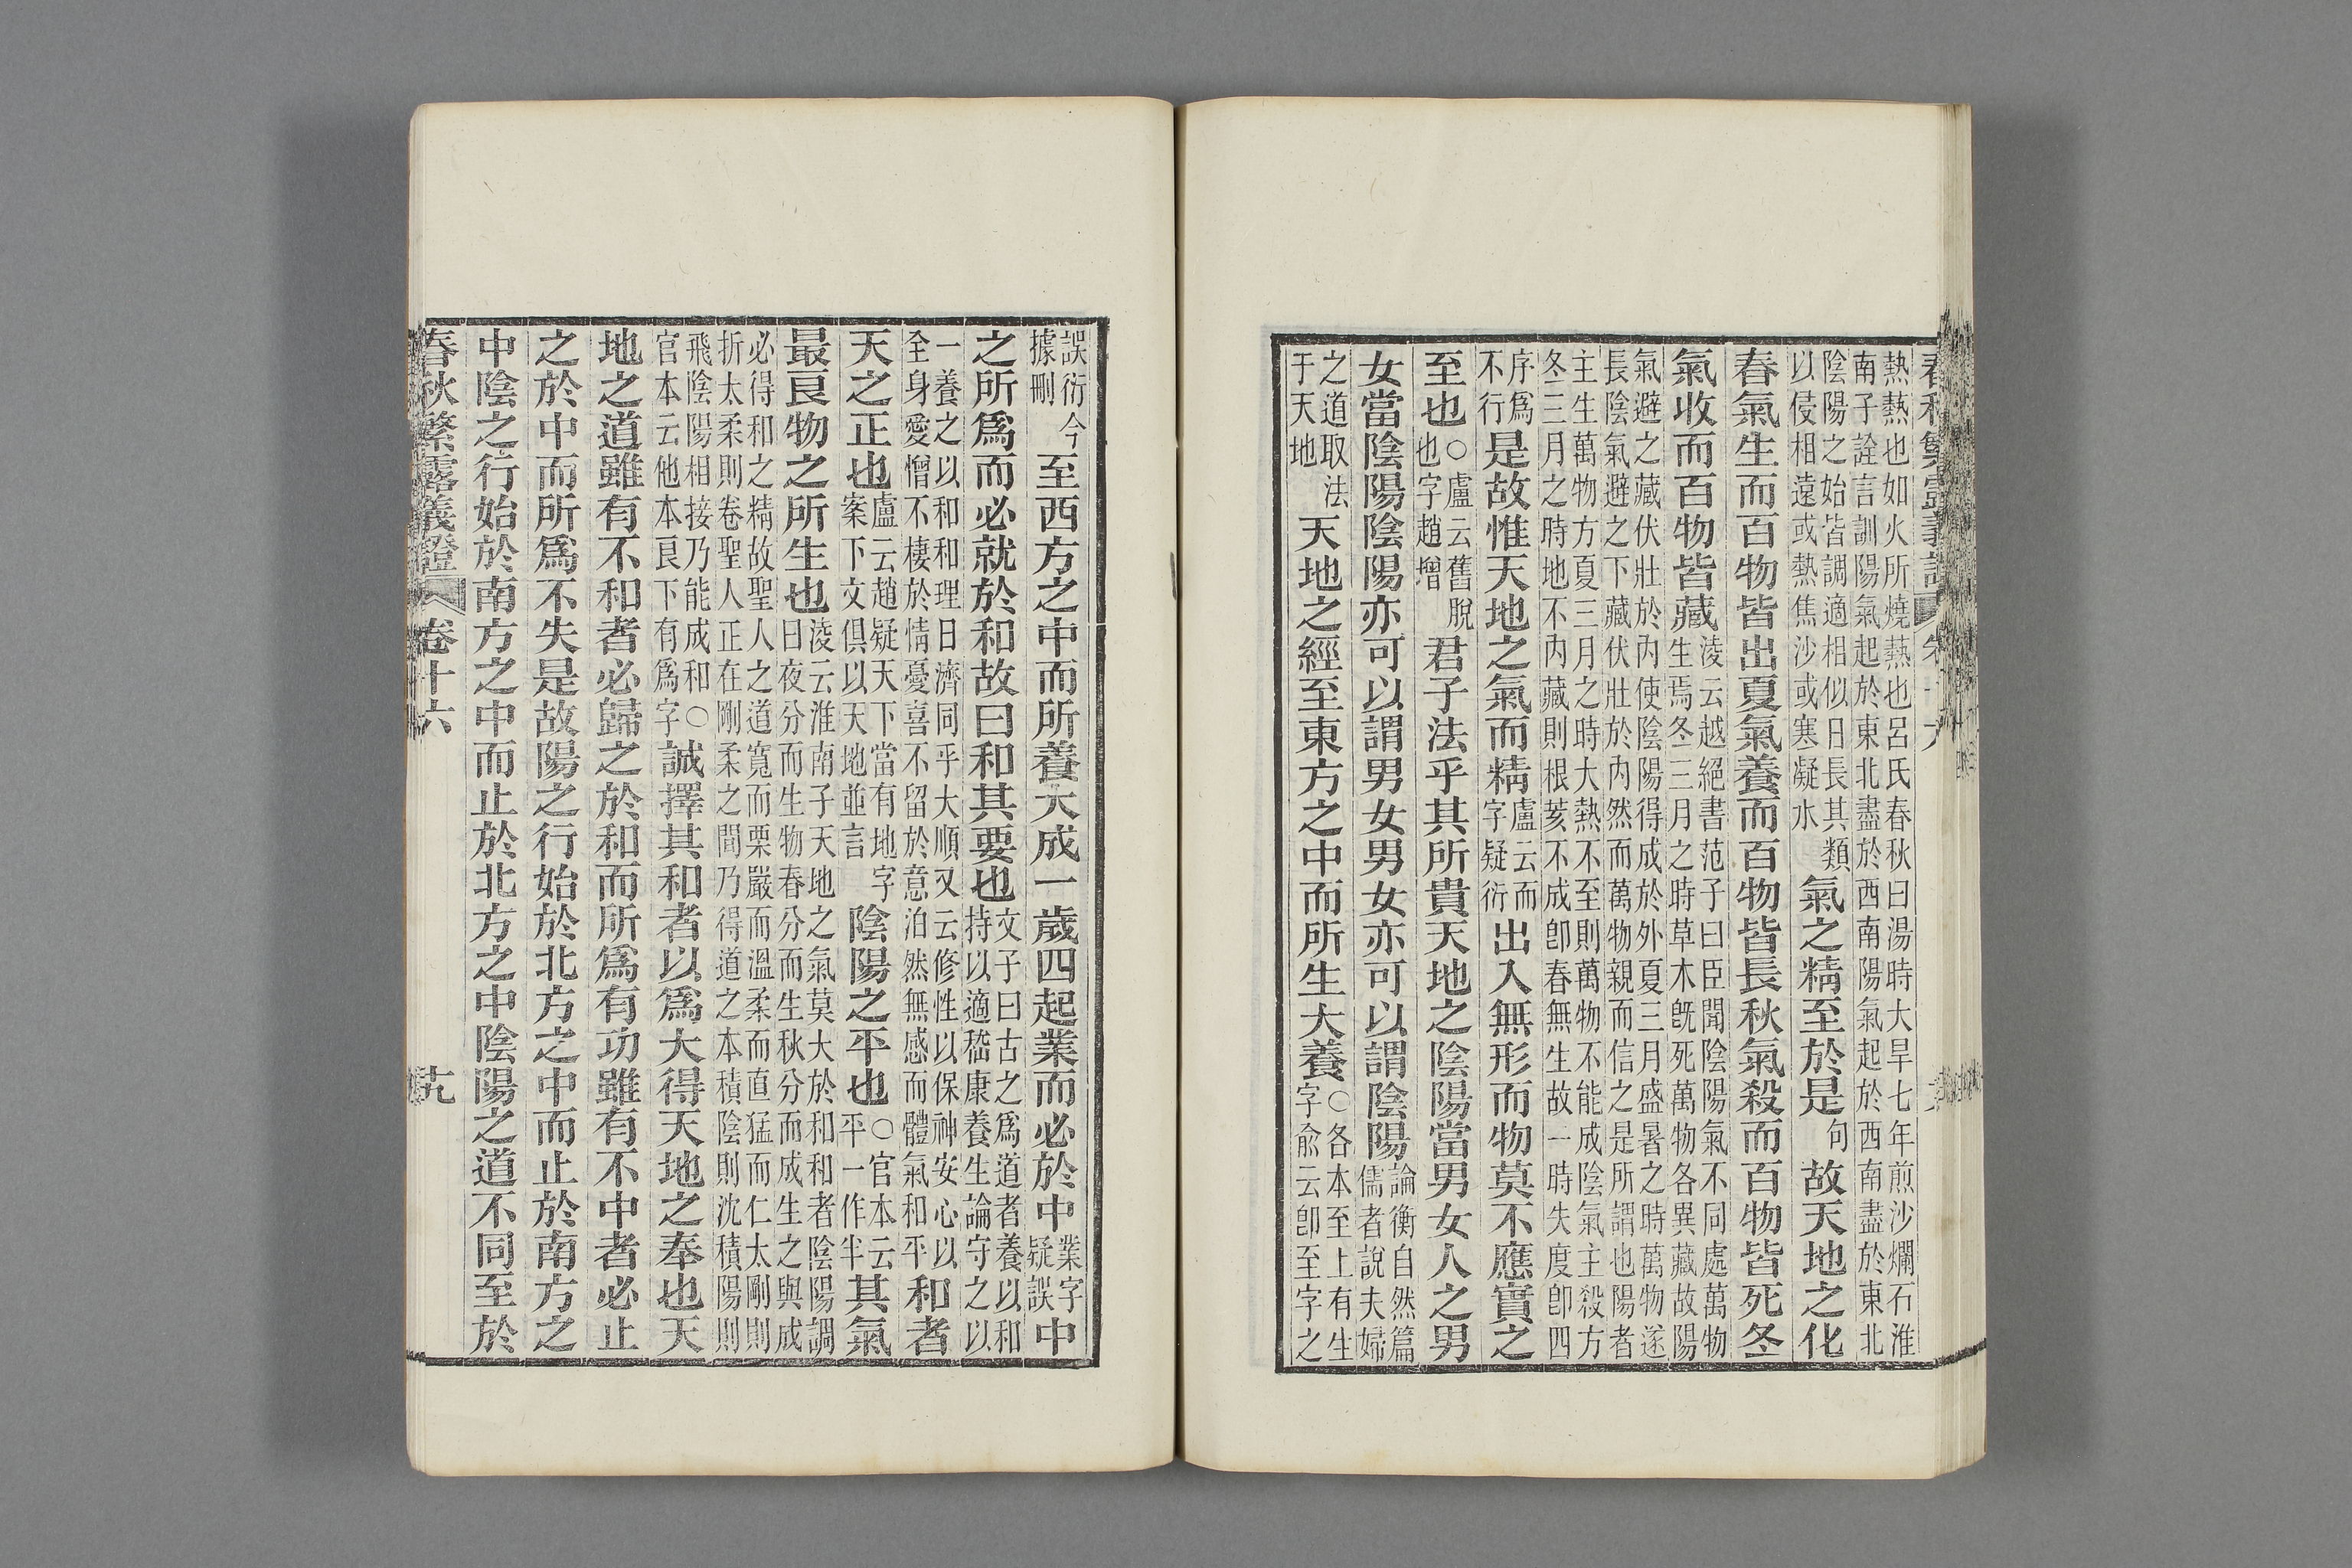 熱熱也如火所燒熱也呂氏春秋曰湯時大旱七年煎沙爛石淮
南子詮言訓陽氣起於東北盡於西南陽氣起於西南盡於東北
陰陽之始皆調適相似日長其類以侵相遠或熱焦沙或寒凝水氣之精至於是句故天地之化
春氣生而百物皆出夏氣養而百物皆長秋氣殺而百物皆死冬
氣收而百物皆藏淩云越絕書范子曰臣聞陰陽氣不同處萬物生焉冬三月之時草木旣死萬物各異藏故陽
氣避之藏伏壯於內使陰陽得成於外夏三月盛暑之時萬物遂
長陰氣避之下藏伏壯於內然而萬物親而信之是所謂也陽者
主生萬物方夏三月之時大熱不至則萬物不能成陰氣主殺方
冬三月之時地不內藏則根荄不成卽春無生故一時失度卽四
序爲不行是故惟天地之氣而精盧云而字疑衍出入無形而物莫不應實之
至也○盧云舊脫也字趙增君子法乎其所貴天地之陰陽當男女人之男
女當陰陽陰陽亦可以謂男女男女亦可以謂陰陽論衡自然篇儒者說夫婦
之道取法于天地天地之經至東方之中而所生大養○各本至上有生字兪云卽至字之
誤衍今據刪至西方之中而所養大成一歲四起業而必於中業字疑誤中
之所爲而必就於和故曰和其要也文子曰古之爲道者養以和持以適嵇康養生論守之以
一養之以和和理日濟同乎大順又云修性以保神安心以全身愛憎不棲於情憂喜不留於意泊然無感而體氣和平和者
天之正也盧云趙疑天下當有地字案下文俱以天地並言陰陽之平也○官本云平一作半其氣
最良物之所生也淩云淮南子天地之氣莫大於和和者陰陽調日夜分而生物春分而生秋分而成生之與成
必得和之精故聖人之道寬而栗嚴而溫柔而直猛而仁太剛則
折太柔則卷聖人正在剛柔之間乃得道之本積陰則沈積陽則
飛陰陽相接乃能成和○官本云他本良下有爲字誠擇其和者以爲大得天地之奉也天
地之道雖有不和者必歸之於和而所爲有功雖有不中者必止
之於中而所爲不失是故陽之行始於北方之中而止於南方之
中陰之行始於南方之中而止於北方之中陰陽之道不同至於
春秋繁露義證 卷十六 十九